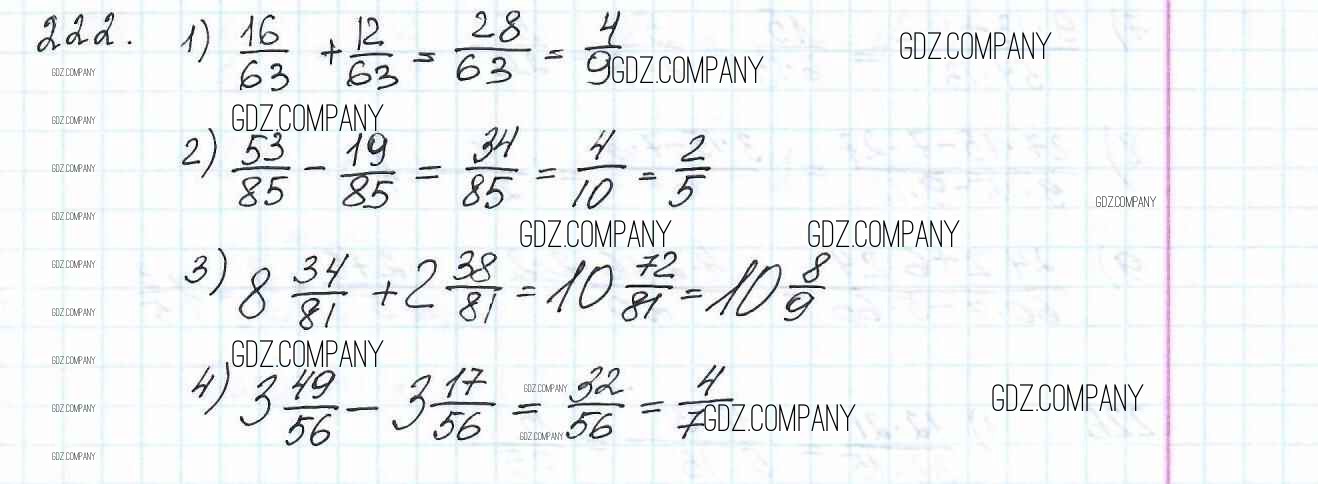 222. 1) 16/63 + 12/63 = 28/63 = 4/9 GDZ.COMPANY GDZ.COMPANY
GDZ.COMPANY
GDZ.COMPANY GDZ.COMPANY
2) 53/85 - 19/85 = 34/85 = 4/10 = 2/5
GDZ.COMPANY
GDZ.COMPANY GDZ.COMPANY
GDZ.COMPANY GDZ.COMPANY GDZ.COMPANY
3) 8 34/81 + 2 38/81 = 10 72/81 = 10 8/9
GDZ.COMPANY
GDZ.COMPANY
GDZ.COMPANY GDZ.COMPANY
4) 3 49/56 - 3 17/56 = 32/56 = 4/7
GDZ.COMPANY GDZ.COMPANY
GDZ.COMPANY GDZ.COMPANY GDZ.COMPANY
GDZ.COMPANY